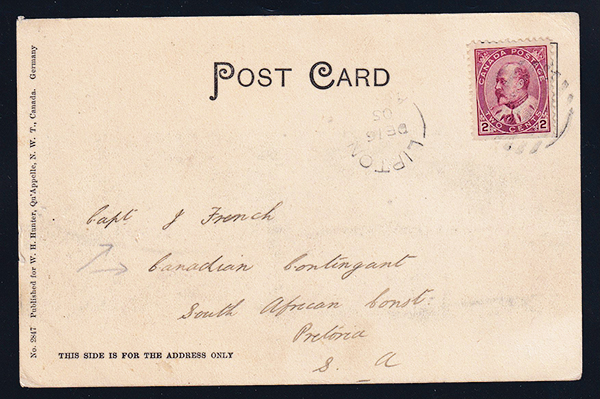 POST CARD
CANADA POSTAGE
2 TWO CENTS 2
LIPTON
DE 16
05
Capt J French
Canadian Contingant
South African Const:
Pretoria
S. A
THIS SIDE IS FOR THE ADDRESS ONLY
No. 2847 Published for W. H. Hunter, Qu'Appelle, N. W. T., Canada. Germany